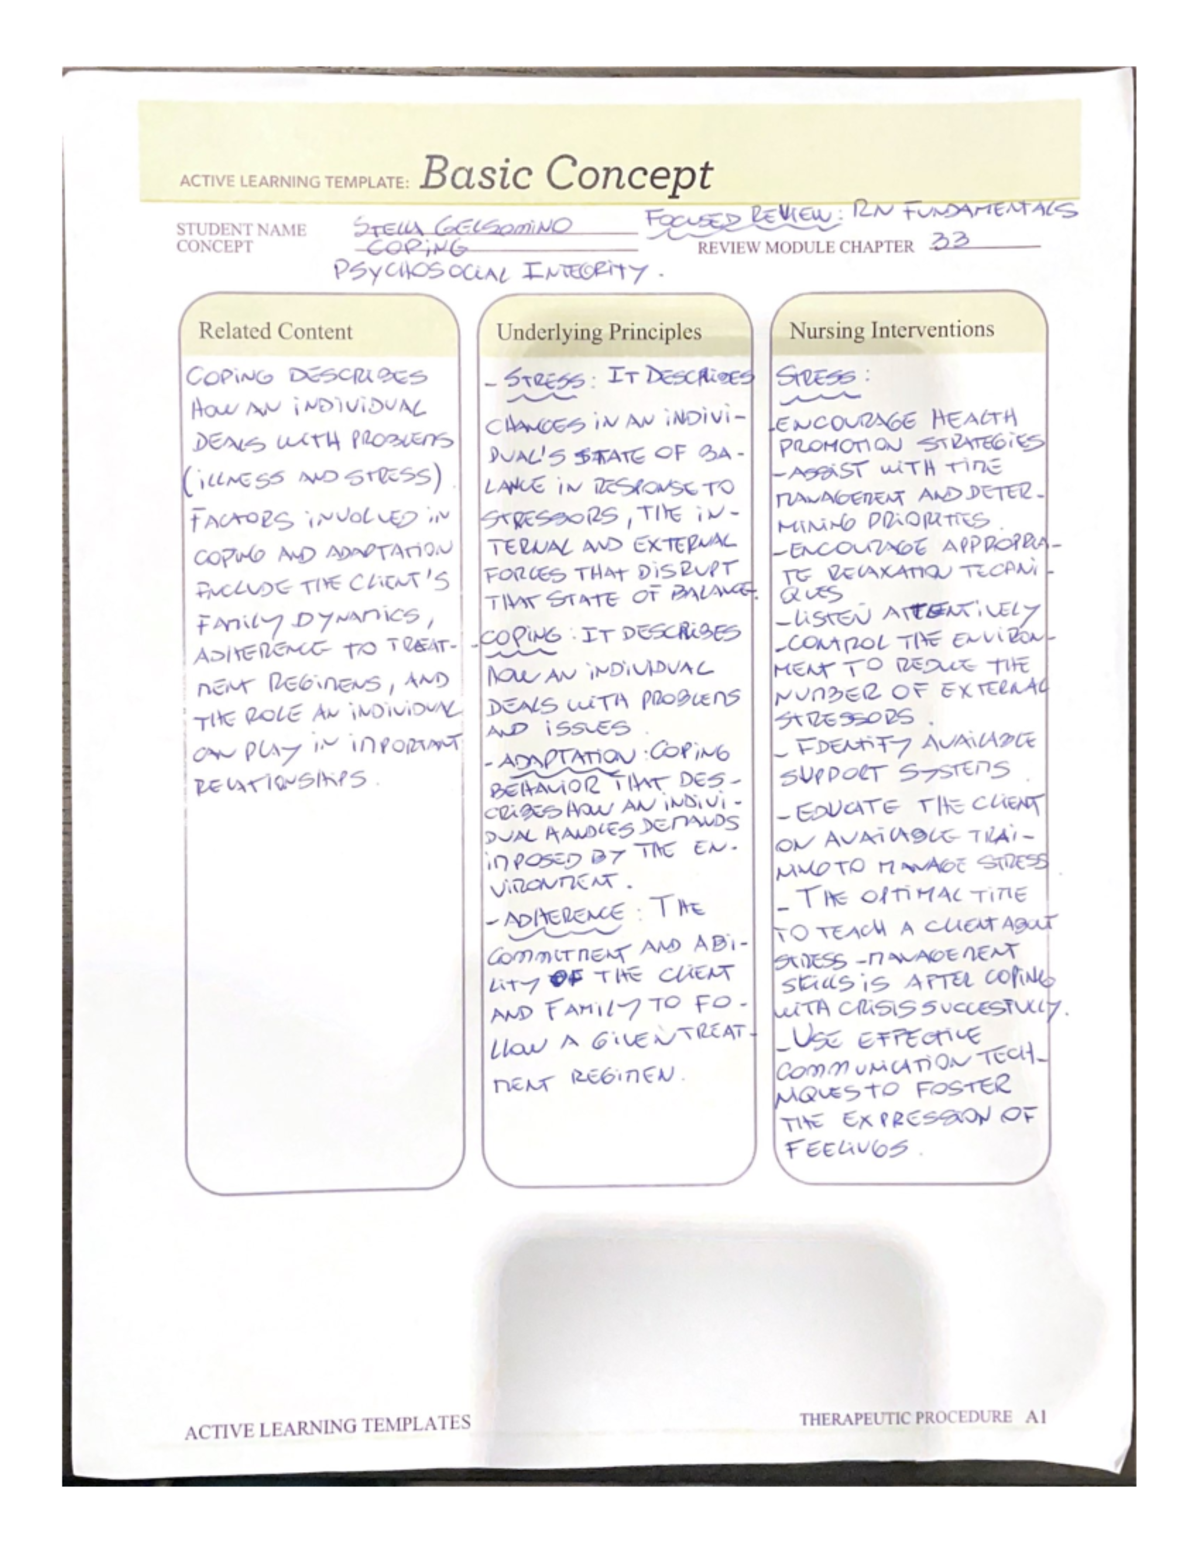 ACTIVE LEARNING TEMPLATE: Basic Concept
STUDENT NAME STELLA GELSOMINO FOCUSED REVIEW: RN FUNDAMENTALS
CONCEPT COPING REVIEW MODULE CHAPTER 33
PSYCHOSOCIAL INTEGRITY.
Related Content
COPING DESCRIBES
HOW AN INDIVIDUAL
DEALS WITH PROBLEMS
(ILLNESS AND STRESS).
FACTORS INVOLVED IN
COPING AND ADAPTATION
INCLUDE THE CLIENT'S
FAMILY DYNAMICS,
ADHERENCE TO TREAT-
MENT REGIMENS, AND
THE ROLE AN INDIVIDUAL
CAN PLAY IN IMPORTANT
RELATIONSHIPS.
Underlying Principles
- STRESS: IT DESCRIBES
CHANGES IN AN INDIVI-
DUAL'S STATE OF BA-
LANCE IN RESPONSE TO
STRESSORS, THE IN-
TERNAL AND EXTERNAL
FORCES THAT DISRUPT
THAT STATE OF BALANCE.
- COPING: IT DESCRIBES
HOW AN INDIVIDUAL
DEALS WITH PROBLEMS
AND ISSUES
- ADAPTATION: COPING
BEHAVIOR THAT DES-
CRIBES HOW AN INDIVI-
DUAL HANDLES DEMANDS
IMPOSED BY THE EN-
VIRONMENT.
- ADHERENCE: THE
COMMITMENT AND ABI-
LITY OF THE CLIENT
AND FAMILY TO FO-
LLOW A GIVEN TREAT-
MENT REGIMEN.
Nursing Interventions
STRESS:
- ENCOURAGE HEALTH
PROMOTION STRATEGIES
- ASSIST WITH TIME
MANAGEMENT AND DETER-
MINING PRIORITIES.
- ENCOURAGE APPROPRIA-
TE RELAXATION TECANI-
QUES
- LISTEN ATTENTIVELY
- CONTROL THE ENVIRON-
MENT TO REDUCE THE
NUMBER OF EXTERNAL
STRESSORS.
- IDENTIFY AVAILABLE
SUPPORT SYSTEMS.
- EDUCATE THE CLIENT
ON AVAILABLE TRAI-
NING TO MANAGE STRESS
- THE OPTIMAL TIME
TO TEACH A CLIENT ABOUT
STRESS-MANAGEMENT
SKILLS IS AFTER COPING
WITH CRISIS SUCCESFULLY.
- USE EFFECTIVE
COMMUNICATION TECH-
NIQUES TO FOSTER
THE EXPRESSION OF
FEELINGS.
ACTIVE LEARNING TEMPLATES THERAPEUTIC PROCEDURE A1